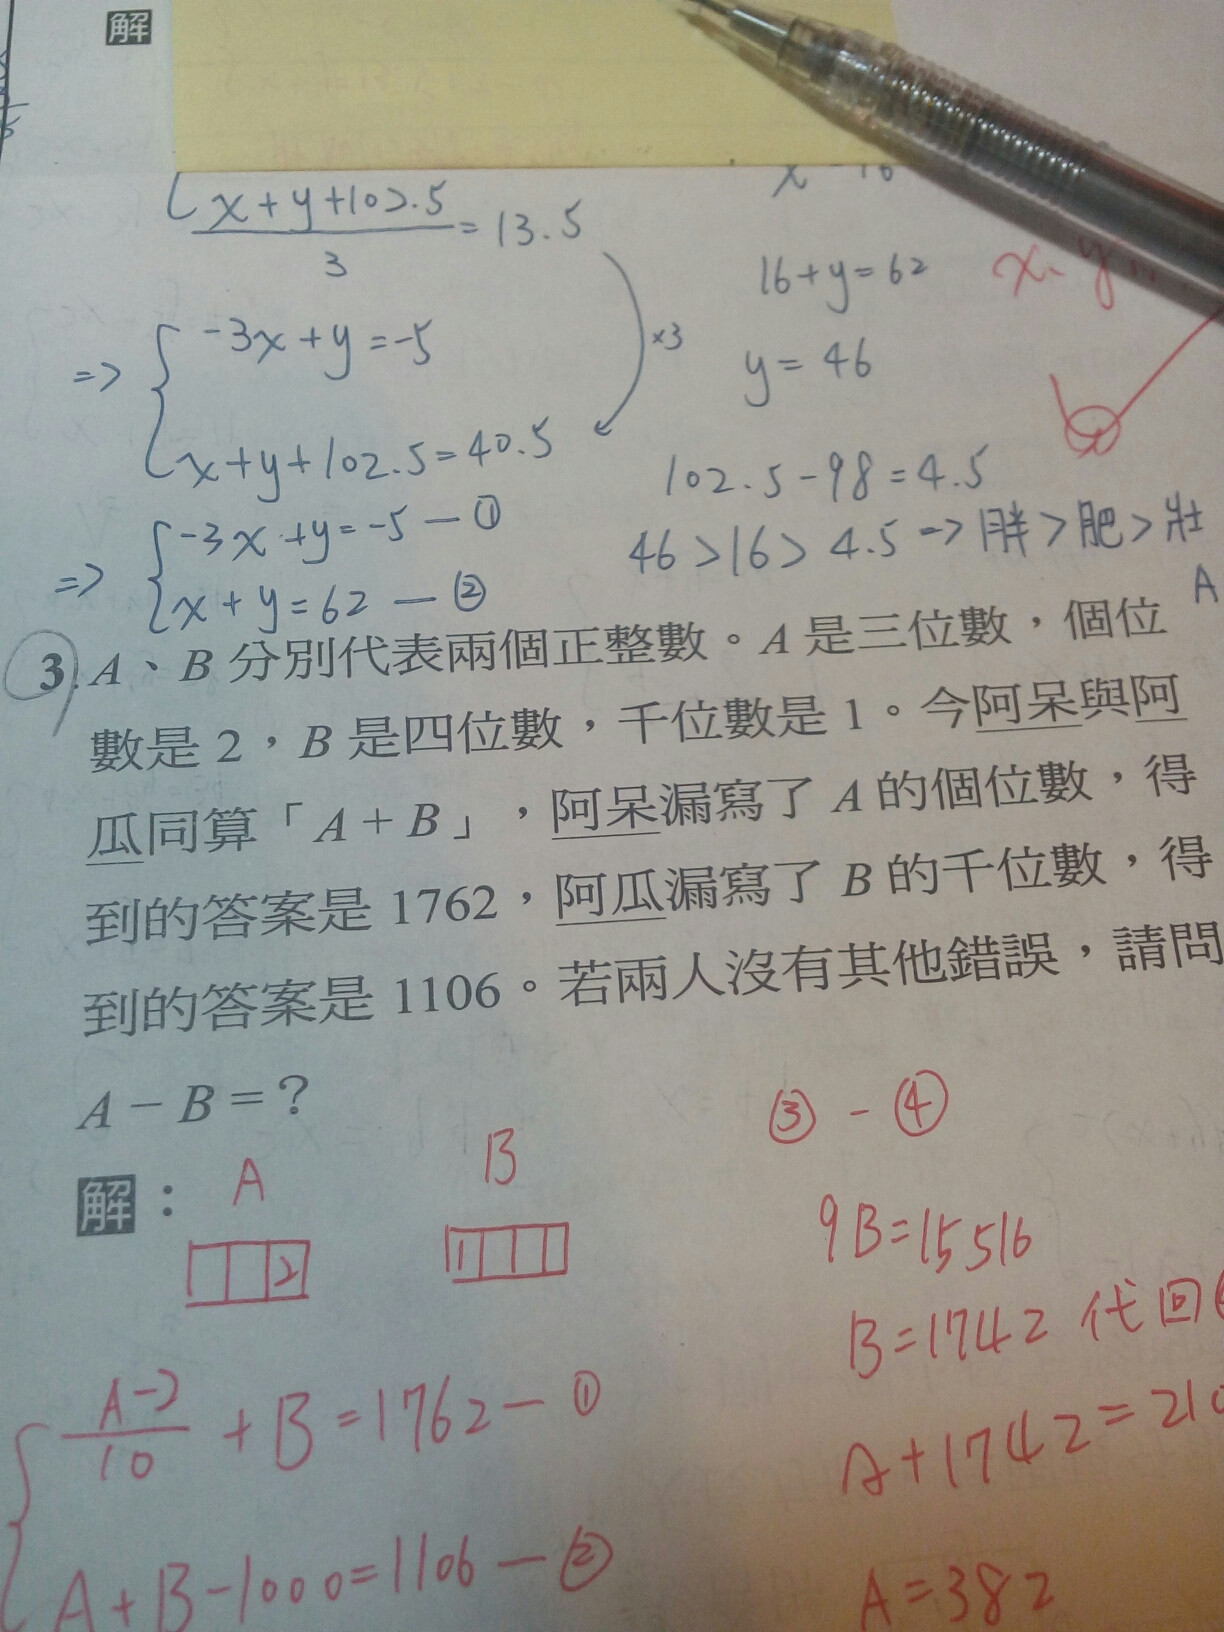 解
x+y+102.5
3
=13.5
x 16
16+y=62
x、y
⇒ { -3x+y=-5
×3
y=46
x+y+102.5=40.5
102.5-98=4.5
⇒ { -3x+y=-5 — ①
x+y=62 — ②
46>16>4.5 ⇒ 胖>肥>壯
A
3. A、B 分別代表兩個正整數。A 是三位數，個位
數是 2，B 是四位數，千位數是 1。今阿呆與阿
瓜同算「A + B」，阿呆漏寫了 A 的個位數，得
到的答案是 1762，阿瓜漏寫了 B 的千位數，得
到的答案是 1106。若兩人沒有其他錯誤，請問
A − B = ？
解：
A
B
2
1
A-2
10
+B=1762 — ①
A+B-1000=1106 — ②
③ - ④
9B=15516
B=1742 代回
A+1742=210
A=382